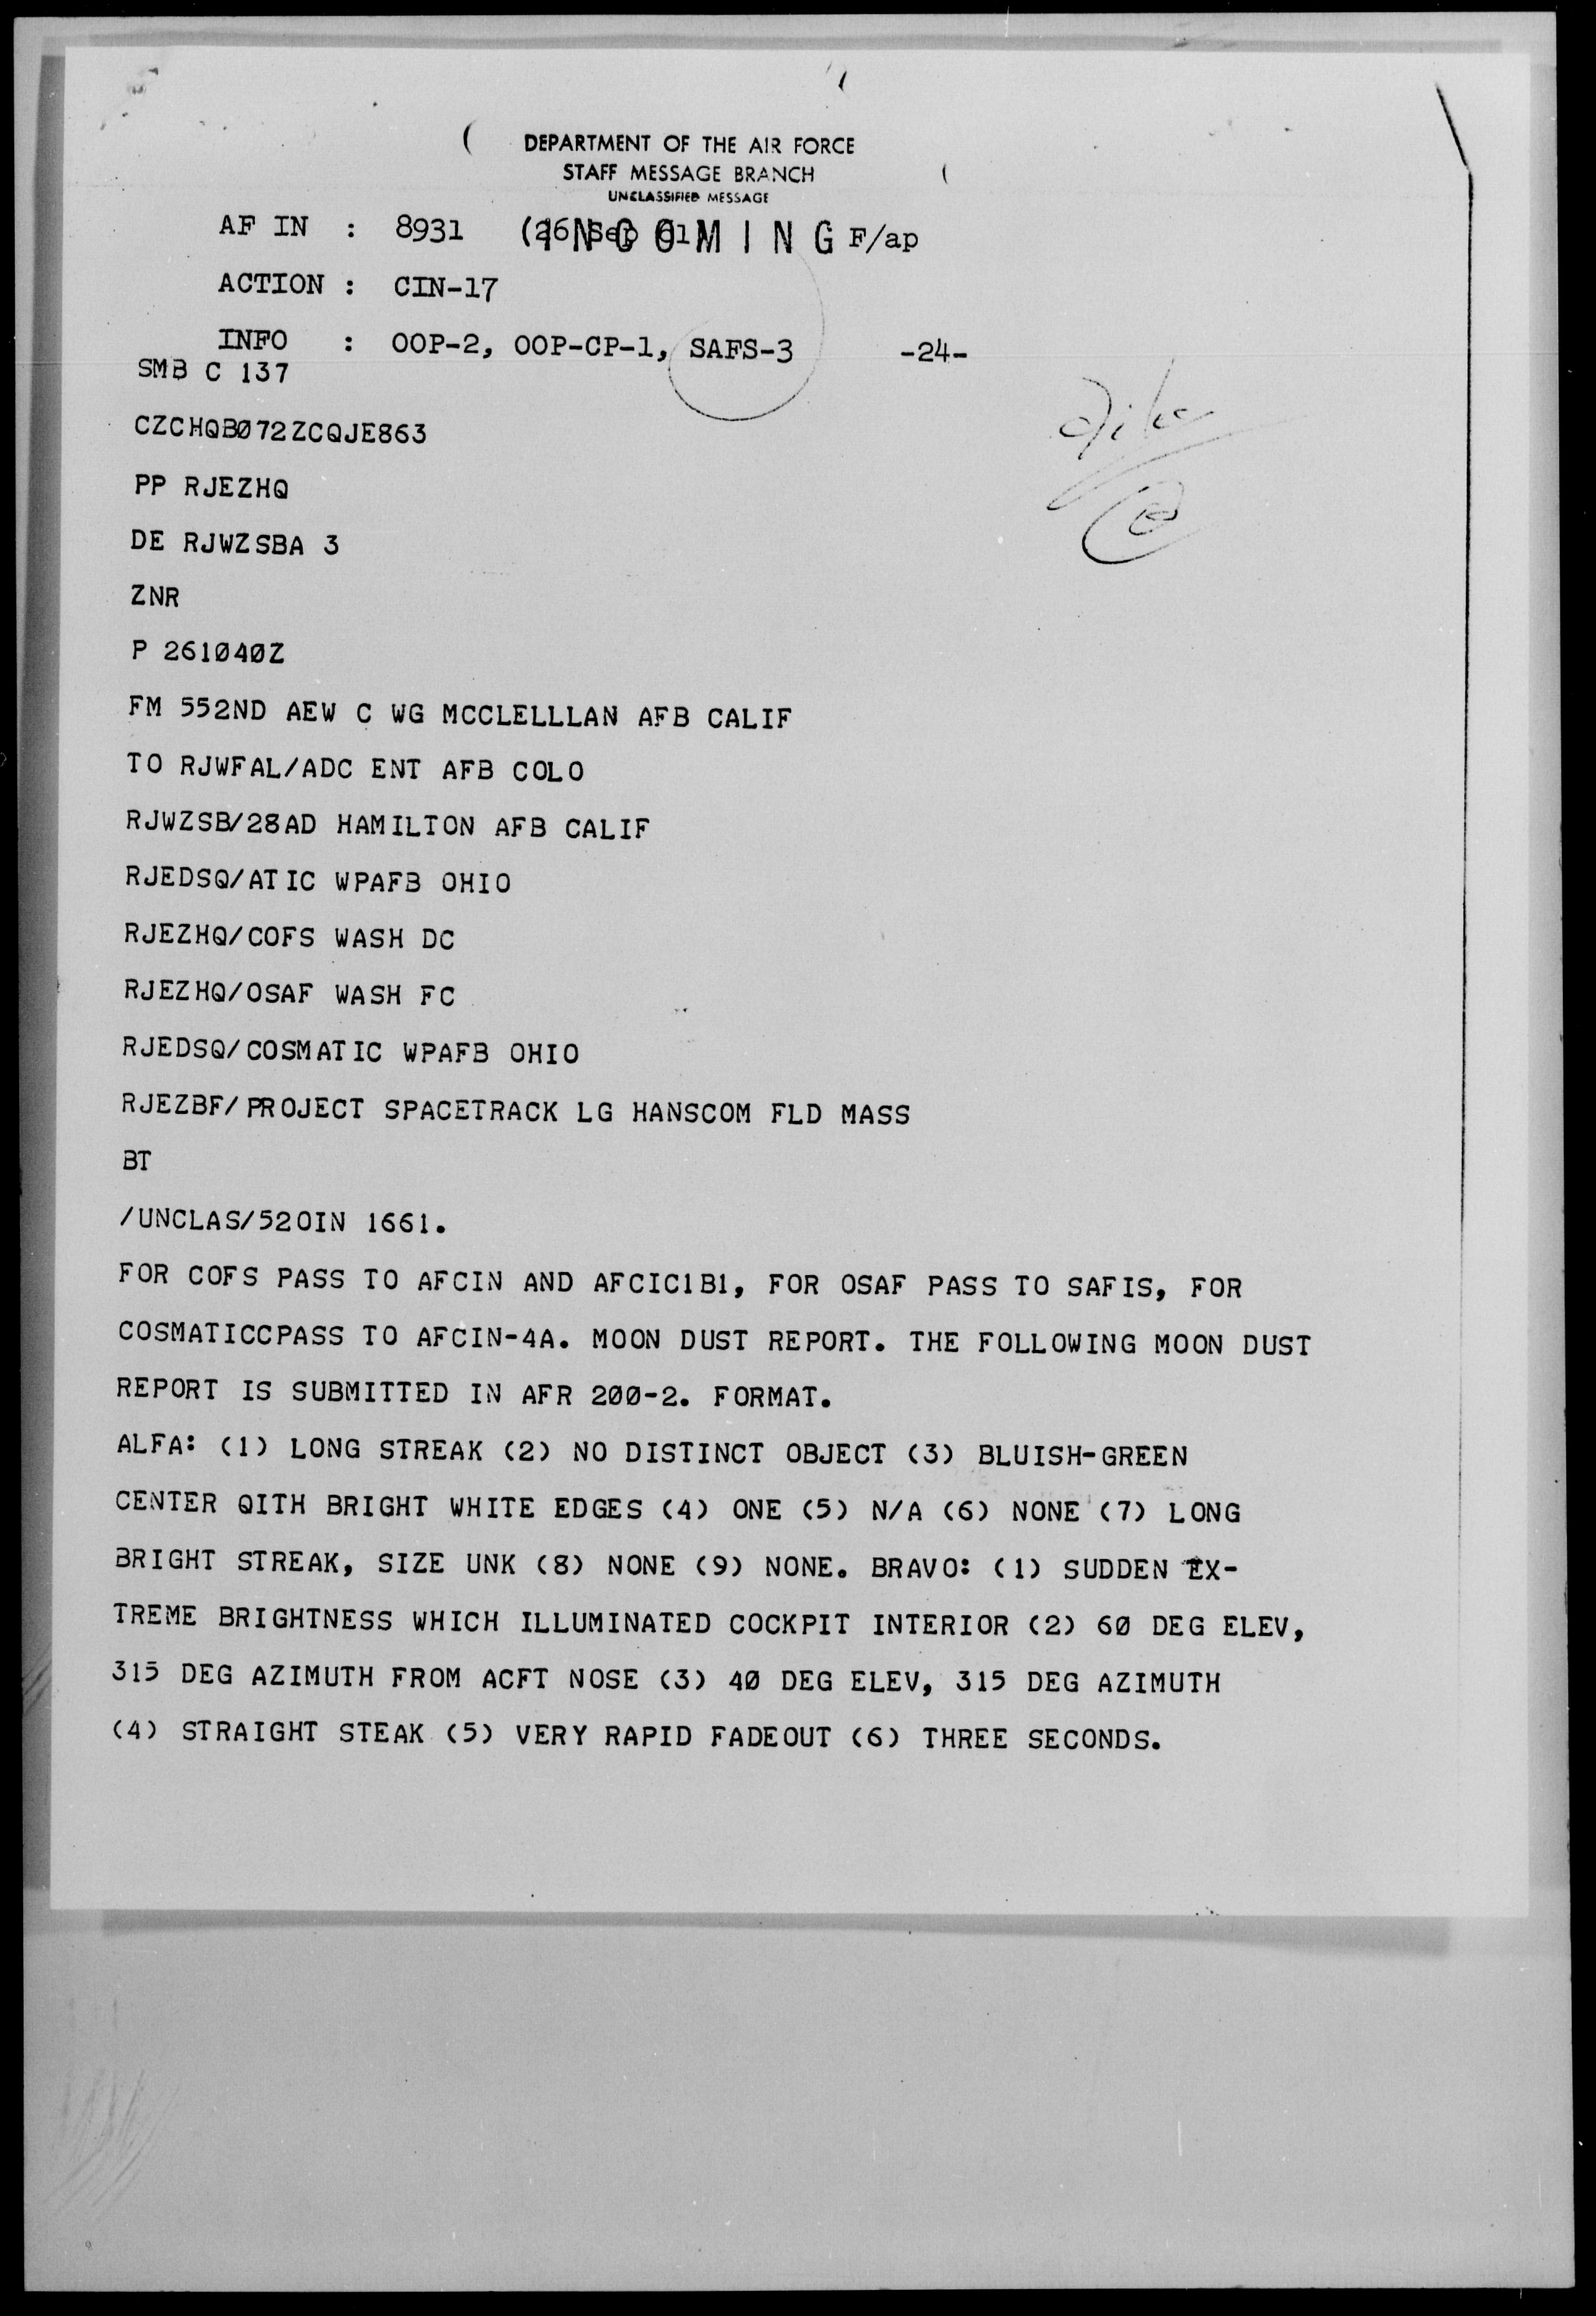 DEPARTMENT OF THE AIR FORCE
STAFF MESSAGE BRANCH
UNCLASSIFIED MESSAGE
INCOMING
AF IN : 8931 (26 Sep 61) F/ap
ACTION : CIN-17
INFO : OOP-2, OOP-CP-1, SAFS-3 -24-
SMB C 137
CZCHQBØ72ZCQJE863
PP RJEZHQ
DE RJWZSBA 3
ZNR
P 261Ø4ØZ
FM 552ND AEW C WG MCCLELLLAN AFB CALIF
TO RJWFAL/ADC ENT AFB COLO
RJWZSB/28AD HAMILTON AFB CALIF
RJEDSQ/ATIC WPAFB OHIO
RJEZHQ/COFS WASH DC
RJEZHQ/OSAF WASH FC
RJEDSQ/COSMATIC WPAFB OHIO
RJEZBF/PROJECT SPACETRACK LG HANSCOM FLD MASS
BT
/UNCLAS/52OIN 1661.
FOR COFS PASS TO AFCIN AND AFCIC1B1, FOR OSAF PASS TO SAFIS, FOR
COSMATICCPASS TO AFCIN-4A. MOON DUST REPORT. THE FOLLOWING MOON DUST
REPORT IS SUBMITTED IN AFR 2ØØ-2. FORMAT.
ALFA: (1) LONG STREAK (2) NO DISTINCT OBJECT (3) BLUISH-GREEN
CENTER QITH BRIGHT WHITE EDGES (4) ONE (5) N/A (6) NONE (7) LONG
BRIGHT STREAK, SIZE UNK (8) NONE (9) NONE. BRAVO: (1) SUDDEN EX-
TREME BRIGHTNESS WHICH ILLUMINATED COCKPIT INTERIOR (2) 6Ø DEG ELEV,
315 DEG AZIMUTH FROM ACFT NOSE (3) 4Ø DEG ELEV, 315 DEG AZIMUTH
(4) STRAIGHT STEAK (5) VERY RAPID FADEOUT (6) THREE SECONDS.